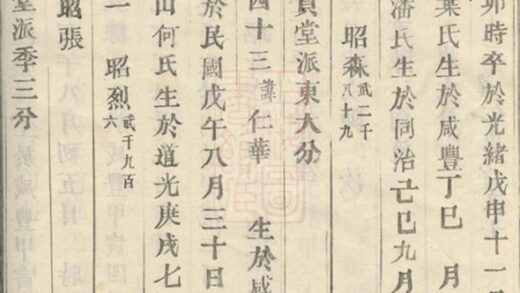 卯時卒於光緒戊申十一
葉氏生於咸豐丁巳 月
潘氏生於同治己巳九月
昭森 貳二千八十九
貢堂派東大分
四十三 諱 仁華 生於咸
於民國戊午八月三十日
山何氏生於道光庚戌七
一 昭烈 貳千九百六
昭張
堂派季三分